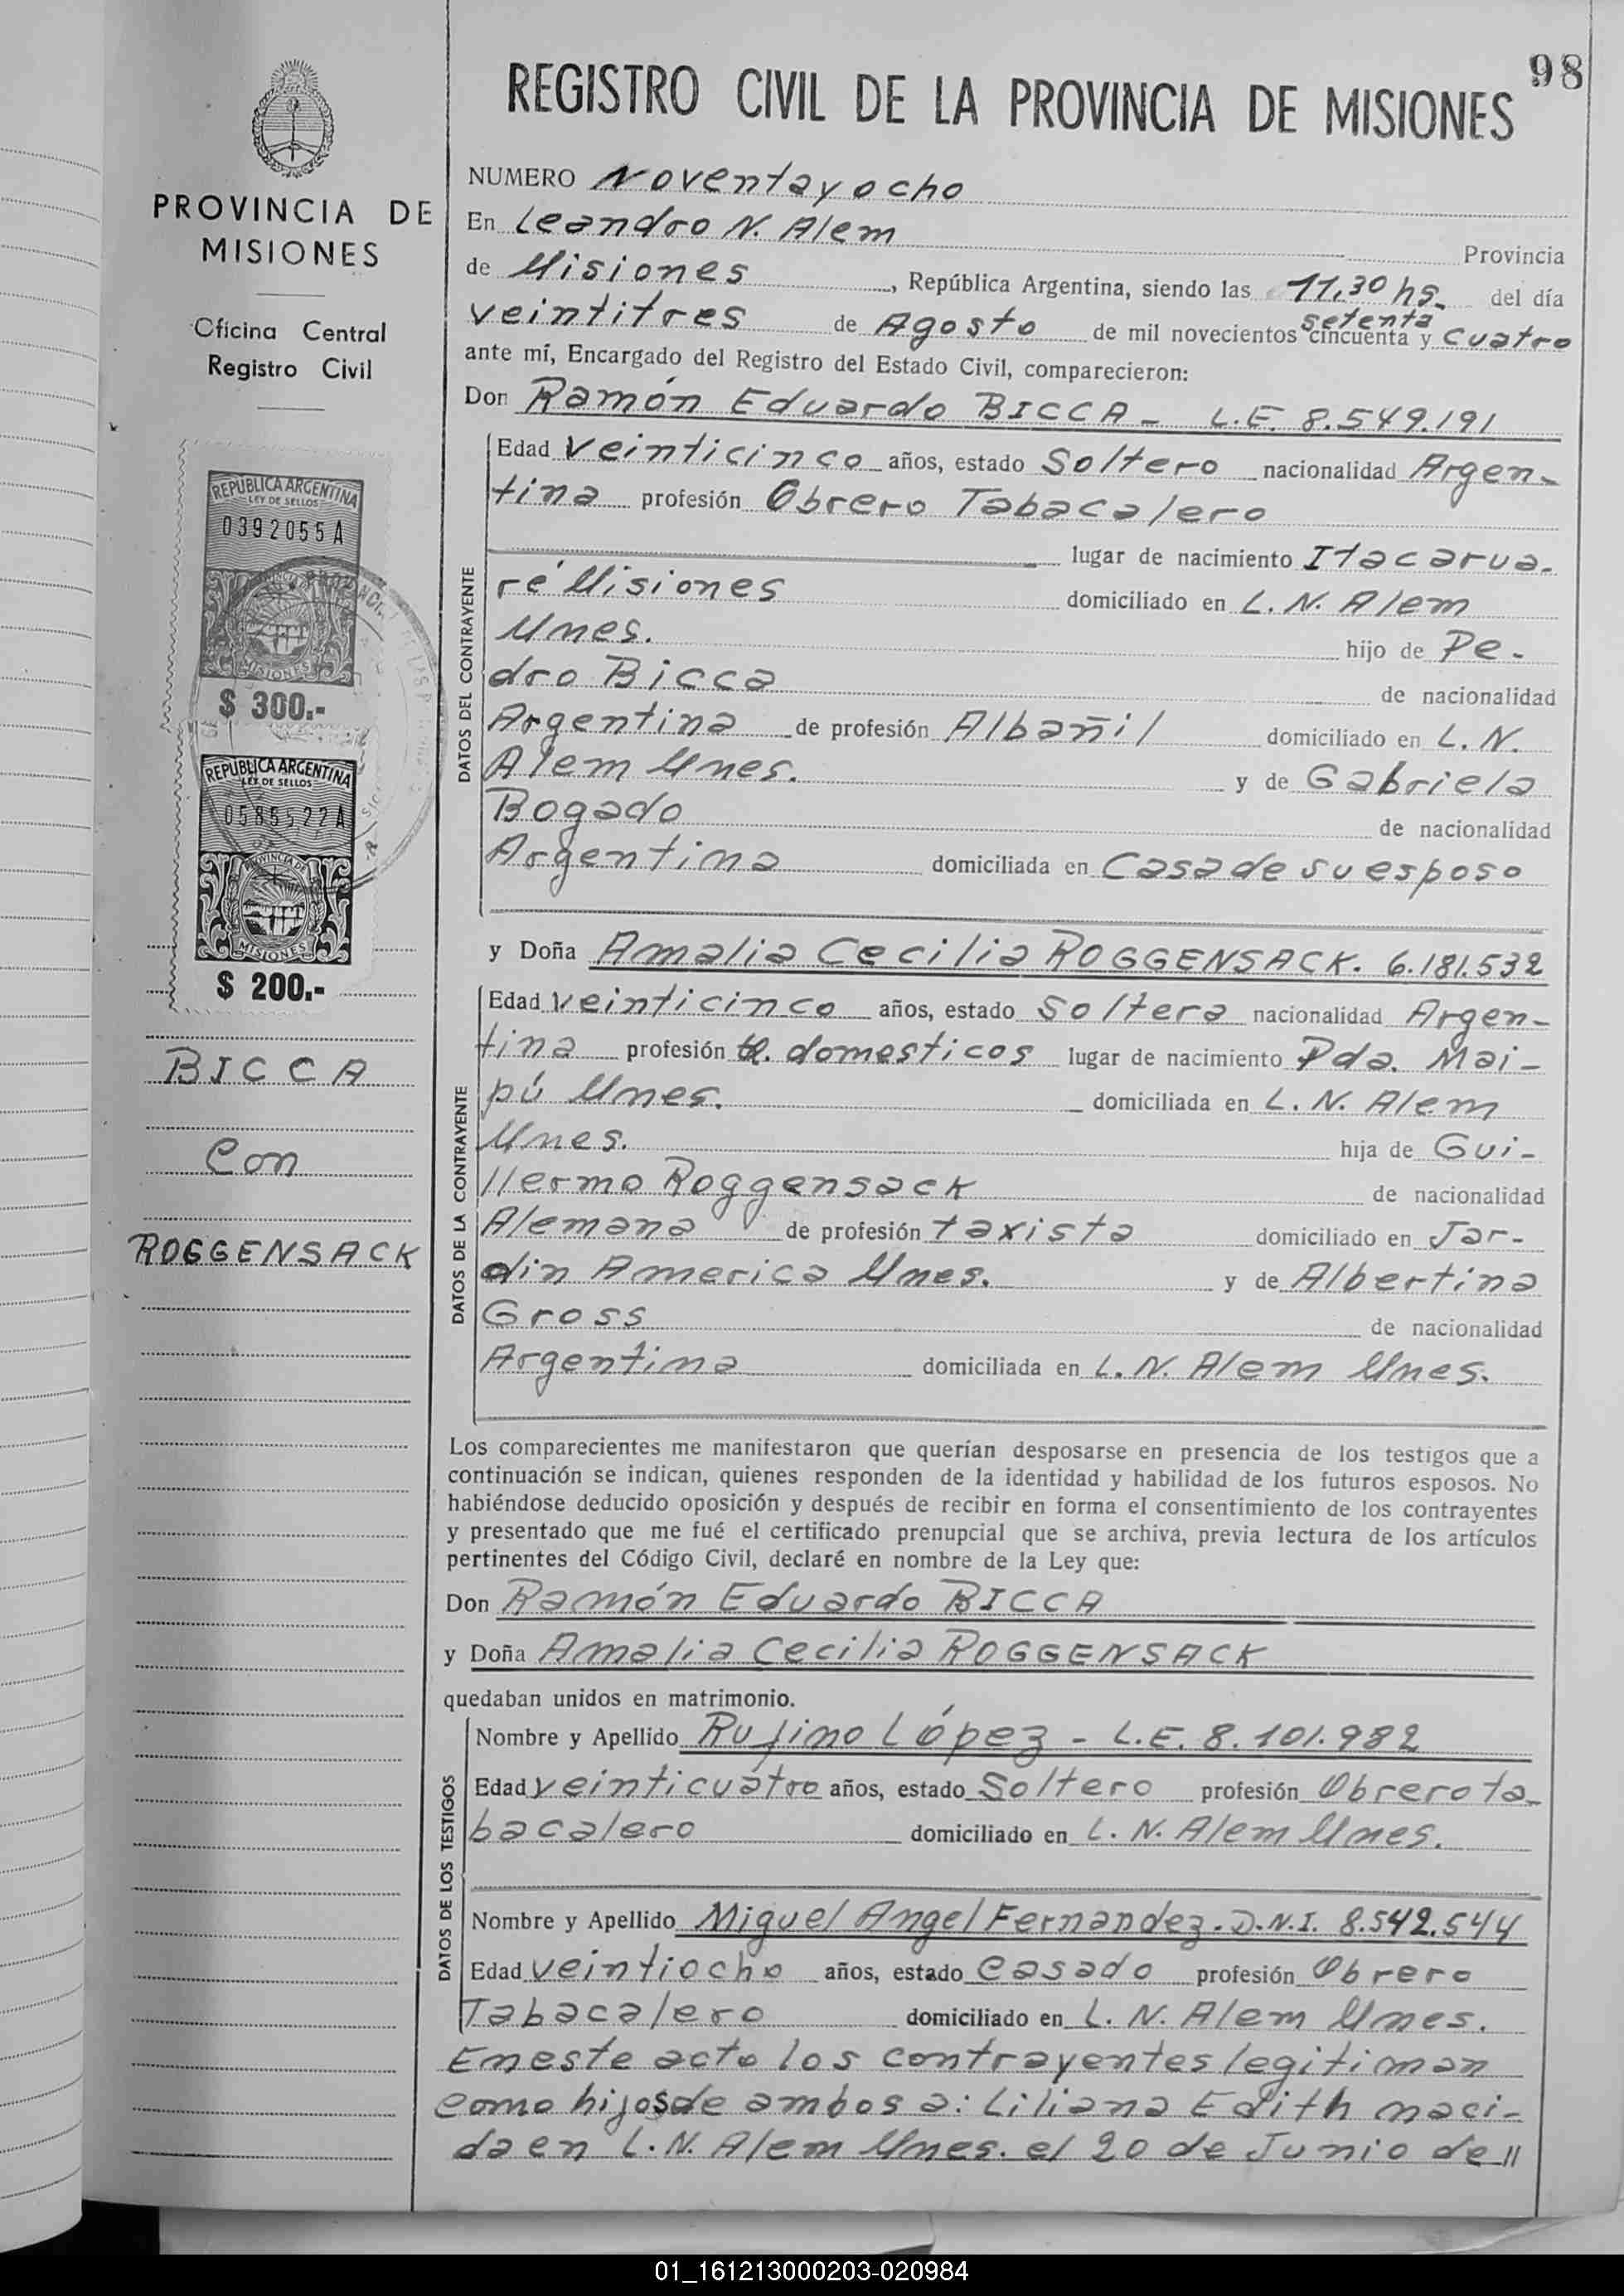 98
REGISTRO CIVIL DE LA PROVINCIA DE MISIONES
PROVINCIA DE
MISIONES
Oficina Central
Registro Civil
REPUBLICA ARGENTINA
LEY DE SELLOS
0392055A
MISIONES
$ 300.-
REPUBLICA ARGENTINA
LEY DE SELLOS
0585522A
PROVINCIA DE
MISIONES
$ 200.-
BICCA
Con
ROGGENSACK
NUMERO Noventayocho
En Leandro N. Alem Provincia
de Misiones, República Argentina, siendo las 11,30 hs. del día
setenta
veintitres de Agosto de mil novecientos cincuenta y cuatro
ante mí, Encargado del Registro del Estado Civil, comparecieron:
Don Ramón Eduardo BICCA - L.E. 8.549.191
DATOS DEL CONTRAYENTE
Edad Veinticinco años, estado Soltero nacionalidad Argen-
tina profesión Obrero Tabacalero
lugar de nacimiento Itacarua-
ré Misiones domiciliado en L. N. Alem
Mnes. hijo de Pe-
dro Bicca de nacionalidad
Argentina de profesión Albañil domiciliado en L. N.
Alem Mnes. y de Gabriela
Bogado de nacionalidad
Argentina domiciliada en Casa de su esposo
y Doña Amalia Cecilia ROGGENSACK. 6.181.532
DATOS DE LA CONTRAYENTE
Edad Veinticinco años, estado Soltera nacionalidad Argen-
tina profesión domesticos lugar de nacimiento Pda. Mai-
pú Mnes. domiciliada en L. N. Alem
Mnes. hija de Gui-
llermo Roggensack de nacionalidad
Alemana de profesión taxista domiciliado en Jar-
din America Mnes. y de Albertina
Gross de nacionalidad
Argentina domiciliada en L. N. Alem Mnes.
Los comparecientes me manifestaron que querían desposarse en presencia de los testigos que a
continuación se indican, quienes responden de la identidad y habilidad de los futuros esposos. No
habiéndose deducido oposición y después de recibir en forma el consentimiento de los contrayentes
y presentado que me fué el certificado prenupcial que se archiva, previa lectura de los artículos
pertinentes del Código Civil, declaré en nombre de la Ley que:
Don Ramón Eduardo BICCA
y Doña Amalia Cecilia ROGGENSACK
quedaban unidos en matrimonio.
DATOS DE LOS TESTIGOS
Nombre y Apellido Rufino López - L.E. 8.101.982
Edad veinticuatro años, estado Soltero profesión Obrero ta-
bacalero domiciliado en L. N. Alem Mnes.
Nombre y Apellido Miguel Angel Fernandez. D.N.I. 8.542.544
Edad veintiocho años, estado Casado profesión Obrero
Tabacalero domiciliado en L. N. Alem Mnes.
En este acto los contrayentes legitiman
como hijos de ambos a: Liliana Edith naci-
da en L. N. Alem Mnes. el 20 de Junio de //
01_161213000203-020984